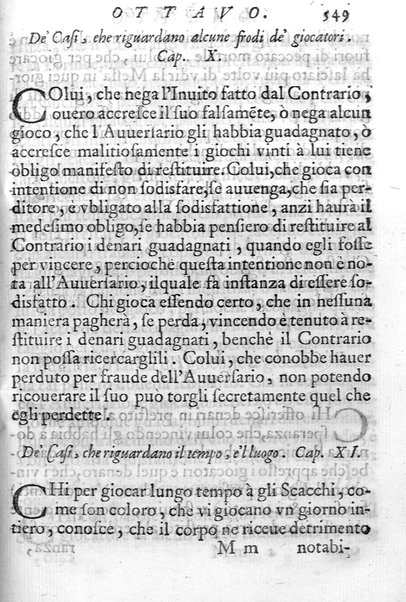 OTTAVO. 549
De' Casi, che riguardano alcune frodi de' giocatori.
Cap. X.
COlui, che nega l'Inuito fatto dal Contrario,
ouero accresce il suo falsamẽte, ò nega alcun
gioco, che l'Auuersario gli habbia guadagnato, ò
accresce malitiosamente i giochi vinti à lui tiene
obligo manifesto di restituire. Colui, che gioca con
intentione di non sodisfare, se auuenga, che sia per-
ditore, è vbligato alla sodisfattione, anzi haurà il
medesimo obligo, se habbia pensiero di restituire al
Contrario i denari guadagnati, quando egli fosse
per vincere, percioche questa intentione non è no-
ta all'Auuersario, il quale fà instanza di essere so-
disfatto. Chi gioca essendo certo, che in nessuna
maniera pagherà, se perda, vincendo è tenuto à re-
stituire i denari guadagnati, benchè il Contrario
non possa ricercarglili. Colui, che conobbe hauer
perduto per fraude dell'Auuersario, non potendo
ricouerare il suo può torgli secretamente quel che
egli perdette.
De' Casi, che riguardano il tempo, e'l luogo. Cap. XI.
CHi per giocar lungo tempo à gli Scacchi, co-
me son coloro, che vi giocano vn giorno in-
tiero, conosce, che il corpo ne riceue detrimento
M m notabi-